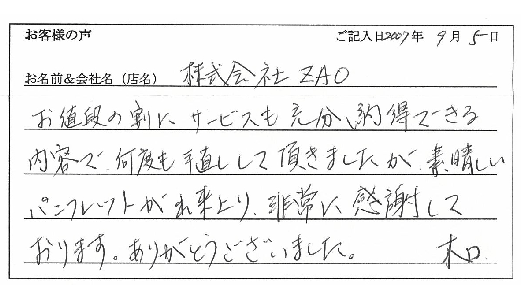 お客様の声 ご記入日2007年 9月 5日
お名前&会社名(店名) 株式会社 ZAO
お値段の割に サービスも充分、納得できる
内容で、何度も手直しして頂きましたが、素晴しい
パンフレットが出来上り、非常に感謝して
おります。ありがとうございました。